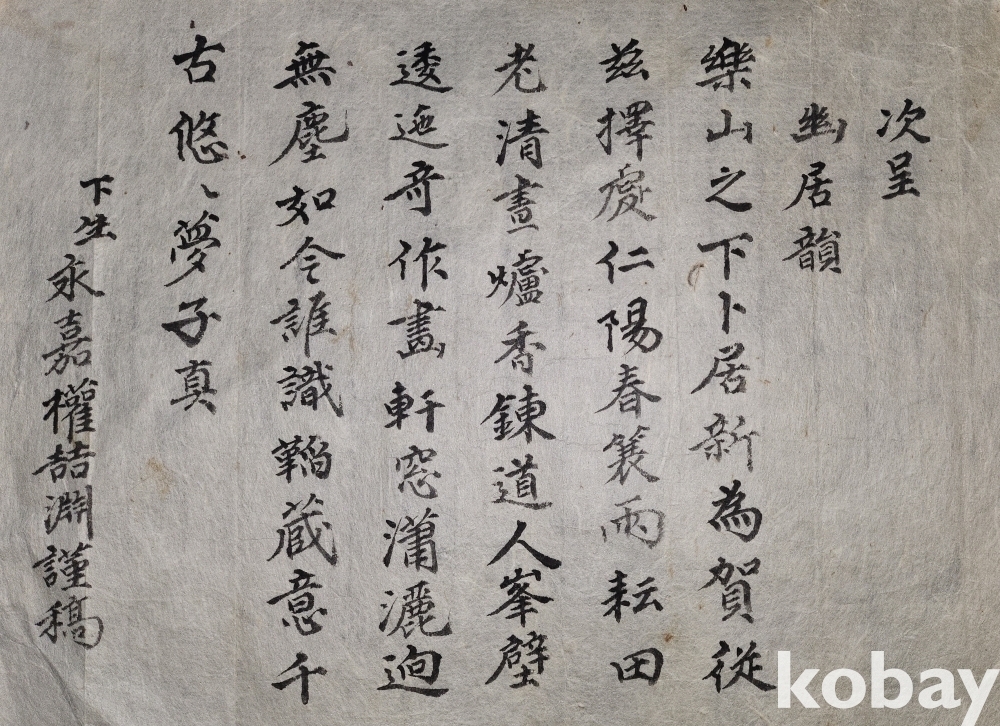 次呈
幽居韻
樂山之下卜居新為賀從
玆擇處仁陽春簑雨耘田
老清晝爐香鍊道人峯壁
逶迤奇作畵軒窓瀟灑逈
無塵如今誰識韜蔵意千
古悠〻夢子真
下生永嘉權喆淵謹稿
kobay